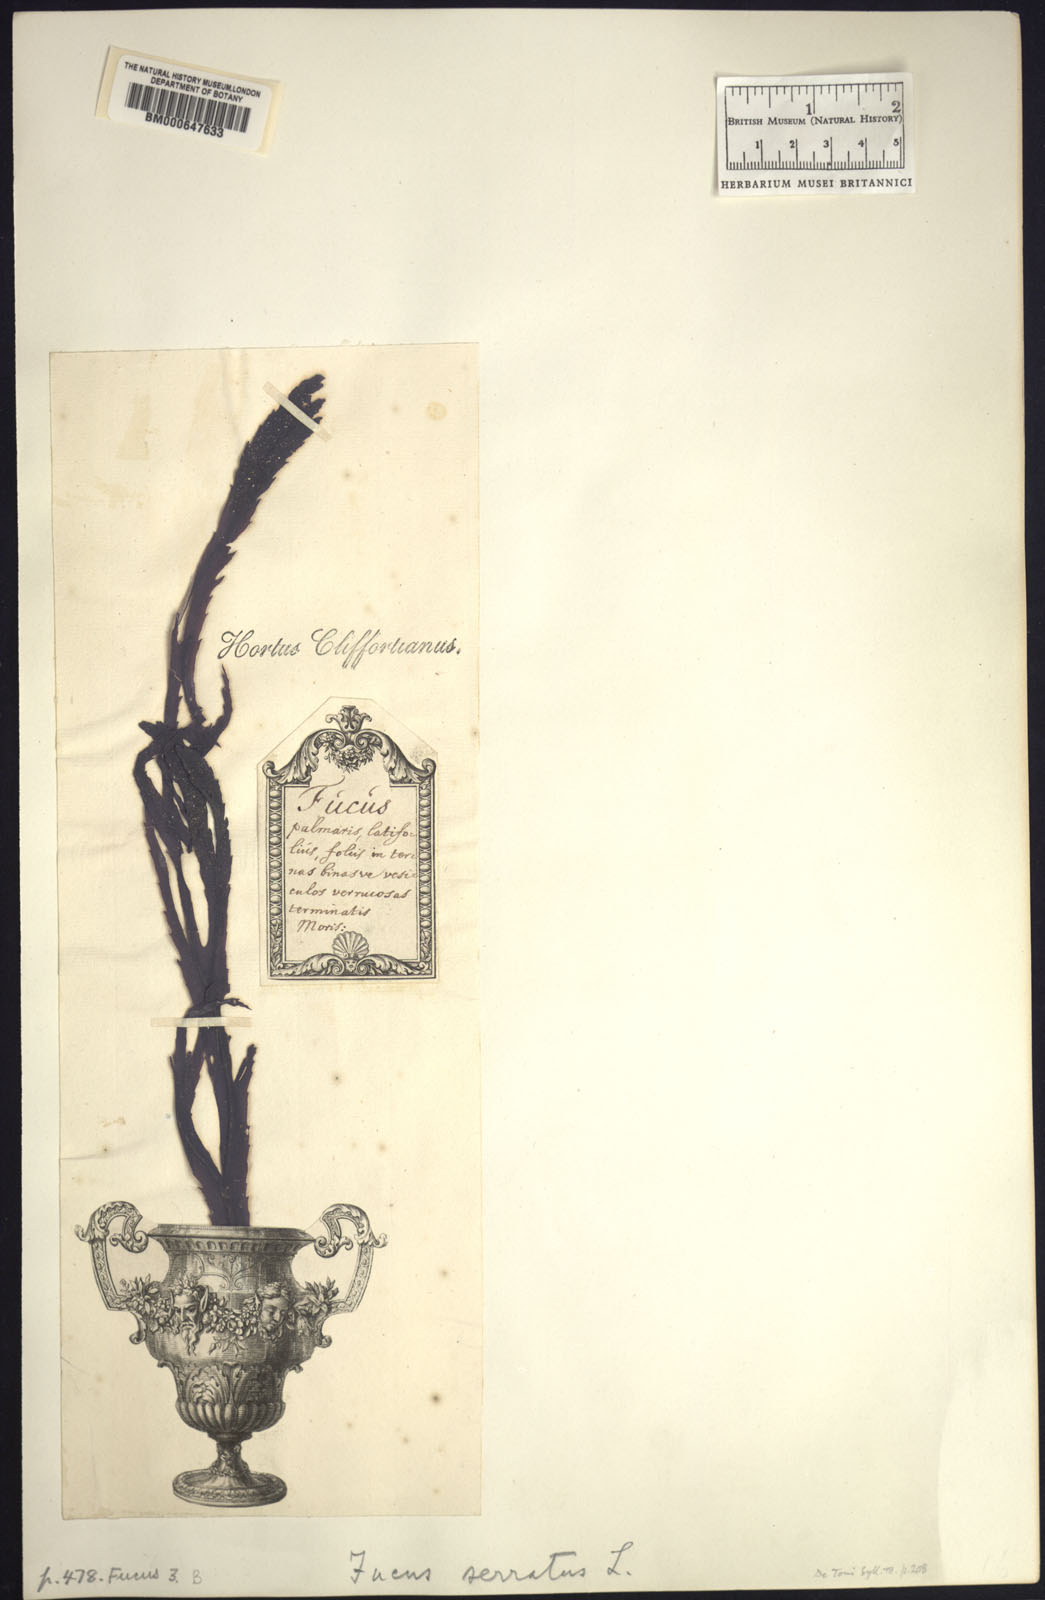 THE NATURAL HISTORY MUSEUM, LONDON
DEPARTMENT OF BOTANY
BM000647633
1 2
BRITISH MUSEUM (NATURAL HISTORY)
1 2 3 4 5
HERBARIUM MUSEI BRITANNICI
Hortus Cliffortianus.
Fucus
palmaris, latifo-
lius, foliis in ter-
nas binasve vesi-
culos verrucosas
terminatis
Moris:
p. 478. Fucus 3. B
Fucus serratus L.
De Toni Syll. III. p. 208